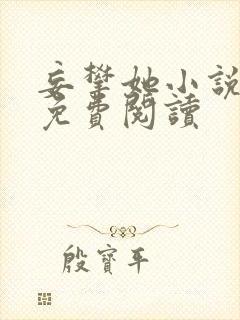 妄攀她小說
免費閱讀
殷寶平